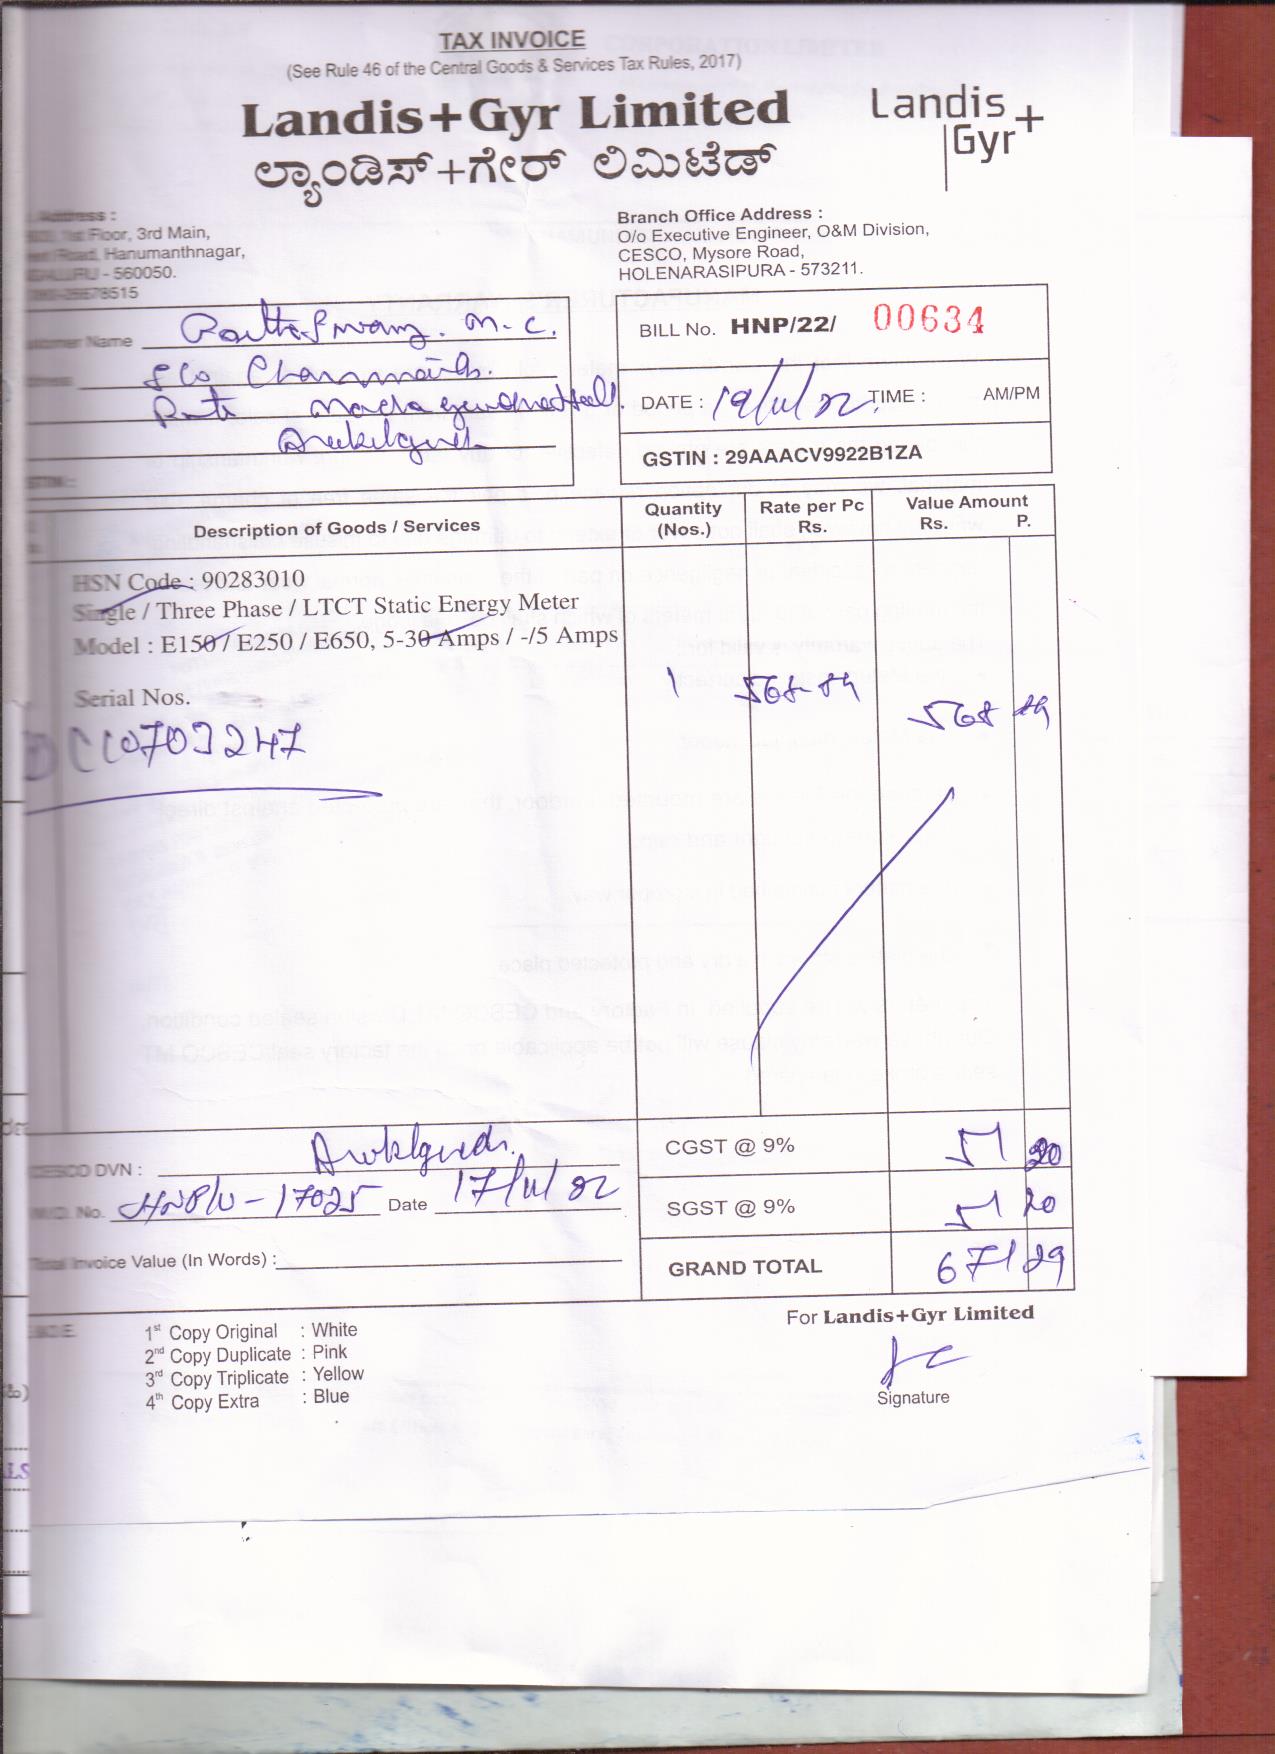 TAX INVOICE
(See Rule 46 of the Central Goods & Services Tax Rules, 2017)
Landis+Gyr Limited
ಲ್ಯಾಂಡಿಸ್+ಗೇರ್ ಲಿಮಿಟೆಡ್
Landis
Gyr+
Address :
1st Floor, 3rd Main,
Road, Hanumanthnagar,
- 560050.
Branch Office Address :
O/o Executive Engineer, O&M Division,
CESCO, Mysore Road,
HOLENARASIPURA - 573211.
Name M.C.
S/o
BILL No. HNP/22/ 00634
DATE : 19/11/22 TIME : AM/PM
GSTIN : 29AAACV9922B1ZA
Description of Goods / Services
Quantity (Nos.)
Rate per Pc Rs.
Value Amount Rs. P.
HSN Code : 90283010
Single / Three Phase / LTCT Static Energy Meter
Model : E150 / E250 / E650, 5-30 Amps / -/5 Amps
Serial Nos.
1 568-89 568 89
CESCO DVN :
No. Date 17/11/22
Total Invoice Value (In Words) :
CGST @ 9% 51 20
SGST @ 9% 51 20
GRAND TOTAL 671 29
1st Copy Original : White
2nd Copy Duplicate : Pink
3rd Copy Triplicate : Yellow
4th Copy Extra : Blue
For Landis+Gyr Limited
Signature